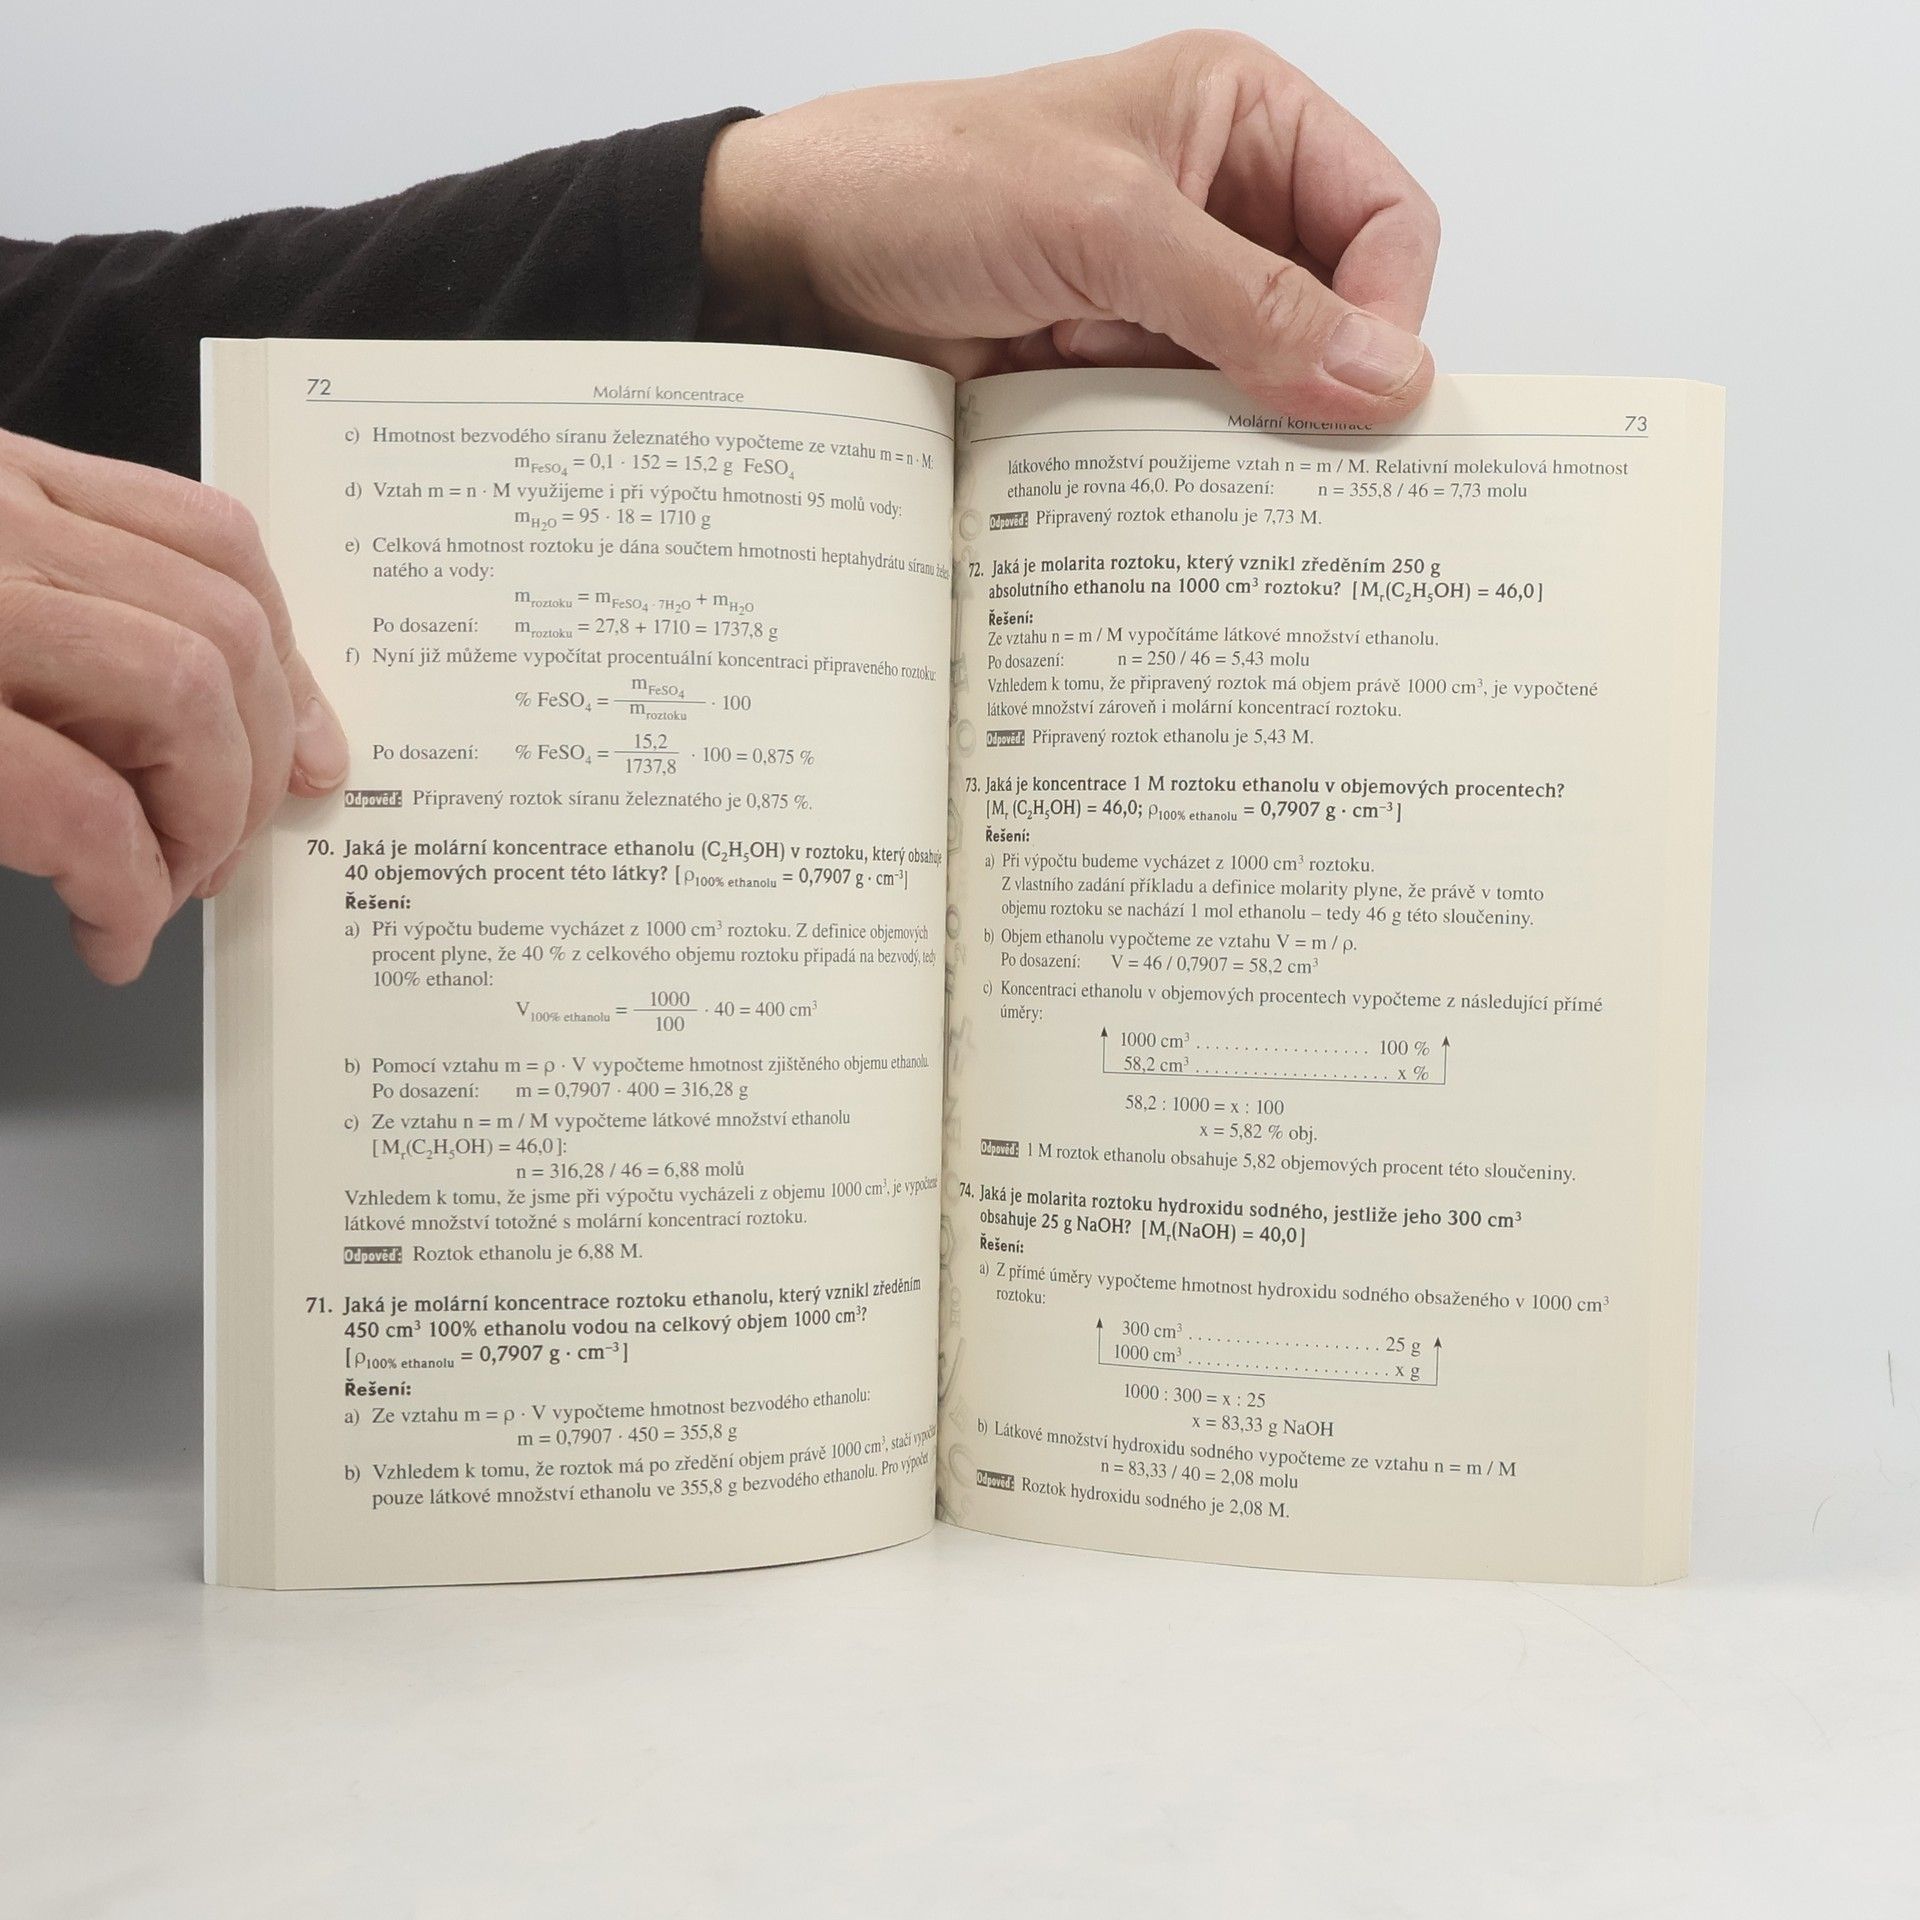 72
Molární koncentrace
c) Hmotnost bezvodého síranu železnatého vypočteme ze vztahu m = n · M:
m_FeSO₄ = 0,1 · 152 = 15,2 g FeSO₄
d) Vztah m = n · M využijeme i při výpočtu hmotnosti 95 molů vody:
m_H₂O = 95 · 18 = 1710 g
e) Celková hmotnost roztoku je dána součtem hmotnosti heptahydrátu síranu
natého a vody:
m_roztoku = m_FeSO₄ · 7H₂O + m_H₂O
Po dosazení: m_roztoku = 27,8 + 1710 = 1737,8 g
f) Nyní již můžeme vypočítat procentuální koncentraci připraveného roztoku:
% FeSO₄ = m_FeSO₄ / m_roztoku · 100
Po dosazení: % FeSO₄ = 15,2 / 1737,8 · 100 = 0,875 %
Odpověď: Připravený roztok síranu železnatého je 0,875 %.
70. Jaká je molární koncentrace ethanolu (C₂H₅OH) v roztoku, který obsahuje
40 objemových procent této látky? [ρ100% ethanolu = 0,7907 g · cm⁻³]
Řešení:
a) Při výpočtu budeme vycházet z 1000 cm³ roztoku. Z definice objemových
procent plyne, že 40 % z celkového objemu roztoku připadá na bezvodý, tedy
100% ethanol:
V100% ethanolu = 1000 / 100 · 40 = 400 cm³
b) Pomocí vztahu m = ρ · V vypočteme hmotnost zjištěného objemu ethanolu.
Po dosazení: m = 0,7907 · 400 = 316,28 g
c) Ze vztahu n = m / M vypočteme látkové množství ethanolu
[Mᵣ(C₂H₅OH) = 46,0]:
n = 316,28 / 46 = 6,88 molů
Vzhledem k tomu, že jsme při výpočtu vycházeli z objemu 1000 cm³, je vypočtené
látkové množství totožné s molární koncentrací roztoku.
Odpověď: Roztok ethanolu je 6,88 M.
71. Jaká je molární koncentrace roztoku ethanolu, který vznikl zředěním
450 cm³ 100% ethanolu vodou na celkový objem 1000 cm³?
[ρ100% ethanolu = 0,7907 g · cm⁻³]
Řešení:
a) Ze vztahu m = ρ · V vypočteme hmotnost bezvodého ethanolu:
m = 0,7907 · 450 = 355,8 g
b) Vzhledem k tomu, že roztok má po zředění objem právě 1000 cm³, stačí
pouze látkové množství ethanolu ve 355,8 g bezvodého ethanolu. Pro výpočet
Molární koncentrace
73
látkového množství použijeme vztah n = m / M. Relativní molekulová hmotnost
ethanolu je rovna 46,0. Po dosazení: n = 355,8 / 46 = 7,73 molu
Odpověď: Připravený roztok ethanolu je 7,73 M.
72. Jaká je molarita roztoku, který vznikl zředěním 250 g
absolutního ethanolu na 1000 cm³ roztoku? [Mᵣ(C₂H₅OH) = 46,0]
Řešení:
Ze vztahu n = m / M vypočítáme látkové množství ethanolu.
Po dosazení: n = 250 / 46 = 5,43 molu
Vzhledem k tomu, že připravený roztok má objem právě 1000 cm³, je vypočtené
látkové množství zároveň i molární koncentrací roztoku.
Odpověď: Připravený roztok ethanolu je 5,43 M.
73. Jaká je koncentrace 1 M roztoku ethanolu v objemových procentech?
[Mᵣ (C₂H₅OH) = 46,0; ρ100% ethanolu = 0,7907 g · cm⁻³]
Řešení:
a) Při výpočtu budeme vycházet z 1000 cm³ roztoku.
Z vlastního zadání příkladu a definice molarity plyne, že právě v tomto
objemu roztoku se nachází 1 mol ethanolu – tedy 46 g této sloučeniny.
b) Objem ethanolu vypočteme ze vztahu V = m / ρ.
Po dosazení: V = 46 / 0,7907 = 58,2 cm³
c) Koncentraci ethanolu v objemových procentech vypočteme z následující přímé
úměry:
1000 cm³ .................. 100 %
58,2 cm³ ..................... x %
58,2 : 1000 = x : 100
x = 5,82 % obj.
Odpověď: 1 M roztok ethanolu obsahuje 5,82 objemových procent této sloučeniny.
74. Jaká je molarita roztoku hydroxidu sodného, jestliže jeho 300 cm³
obsahuje 25 g NaOH? [Mᵣ(NaOH) = 40,0]
Řešení:
a) Z přímé úměry vypočteme hmotnost hydroxidu sodného obsaženého v 1000 cm³
roztoku:
300 cm³ .................... 25 g
1000 cm³ ..................... x g
1000 : 300 = x : 25
x = 83,33 g NaOH
b) Látkové množství hydroxidu sodného vypočteme ze vztahu n = m / M
n = 83,33 / 40 = 2,08 molu
Odpověď: Roztok hydroxidu sodného je 2,08 M.